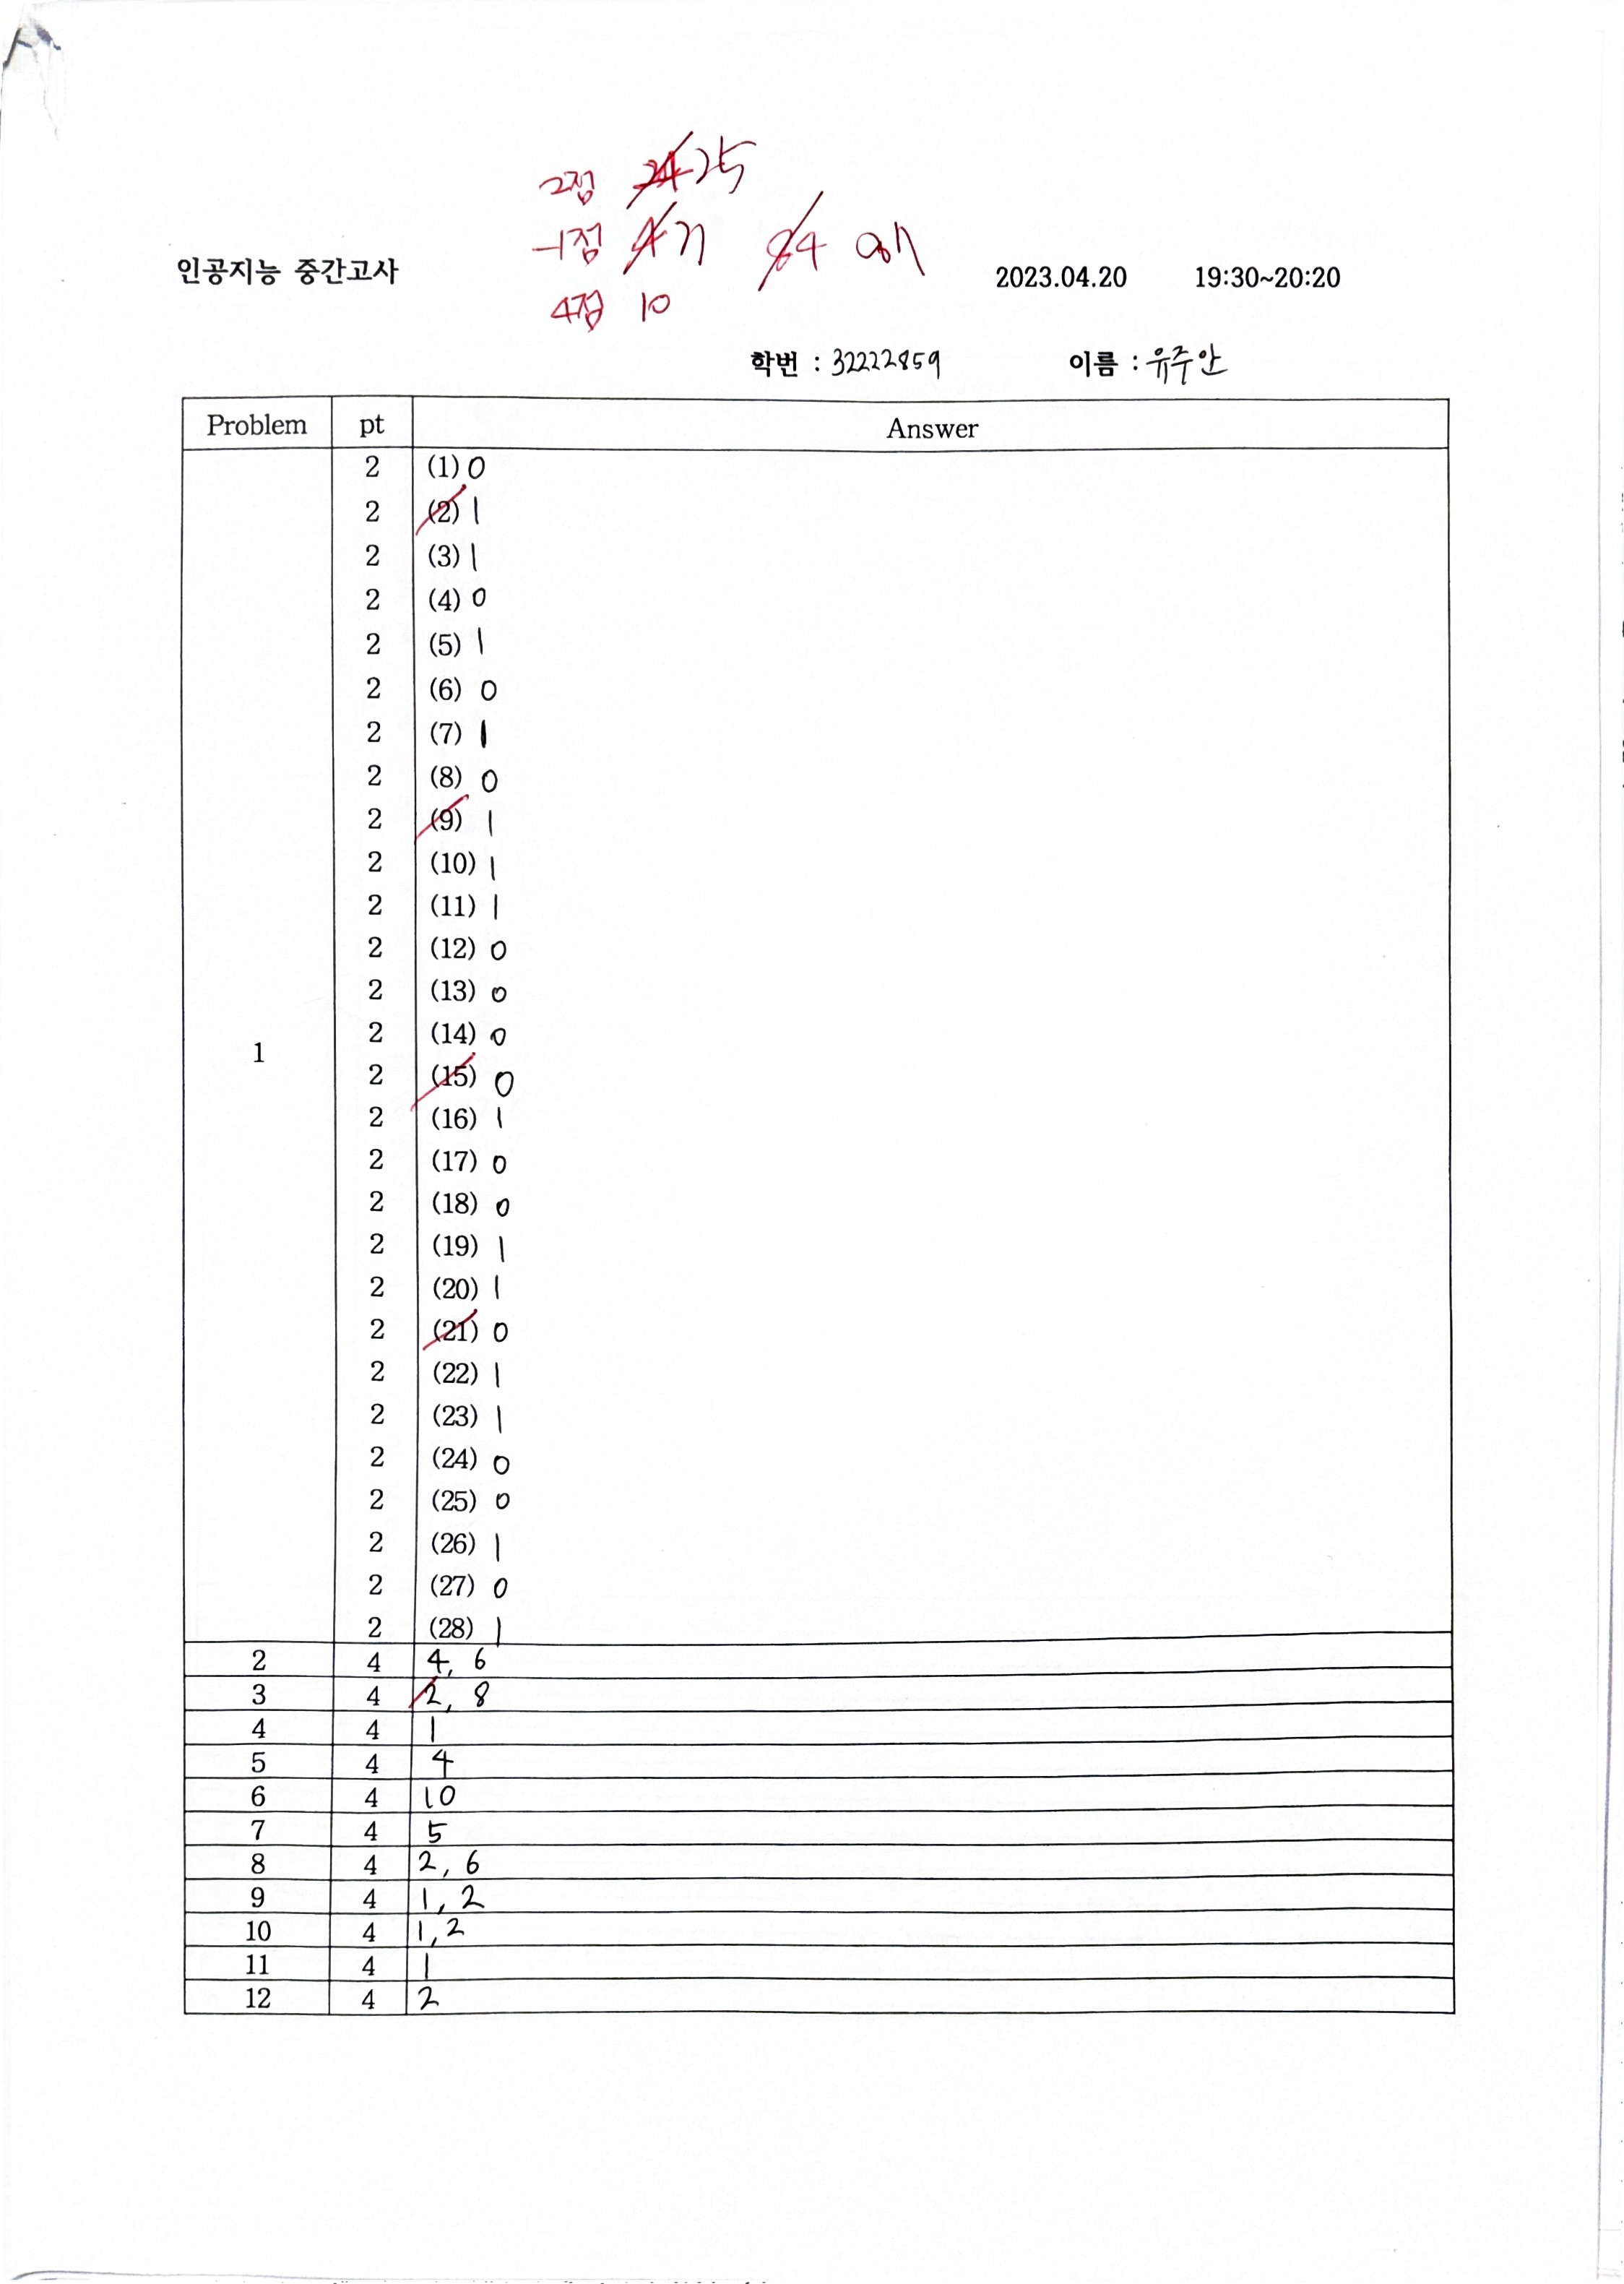 2점 24 25
-1점 4 건
84 87
4점 10
인공지능 중간고사 2023.04.20 19:30~20:20
학번 : 32222859 이름 : 유주안
Problem pt Answer
1
2 (1) 0
2 (2) 1
2 (3) 1
2 (4) 0
2 (5) 1
2 (6) 0
2 (7) 1
2 (8) 0
2 (9) 1
2 (10) 1
2 (11) 1
2 (12) 0
2 (13) 0
2 (14) 0
2 (15) 0
2 (16) 1
2 (17) 0
2 (18) 0
2 (19) 1
2 (20) 1
2 (21) 0
2 (22) 1
2 (23) 1
2 (24) 0
2 (25) 0
2 (26) 1
2 (27) 0
2 (28) 1
2 4 4, 6
3 4 2, 8
4 4 1
5 4 4
6 4 10
7 4 5
8 4 2, 6
9 4 1, 2
10 4 1, 2
11 4 1
12 4 2